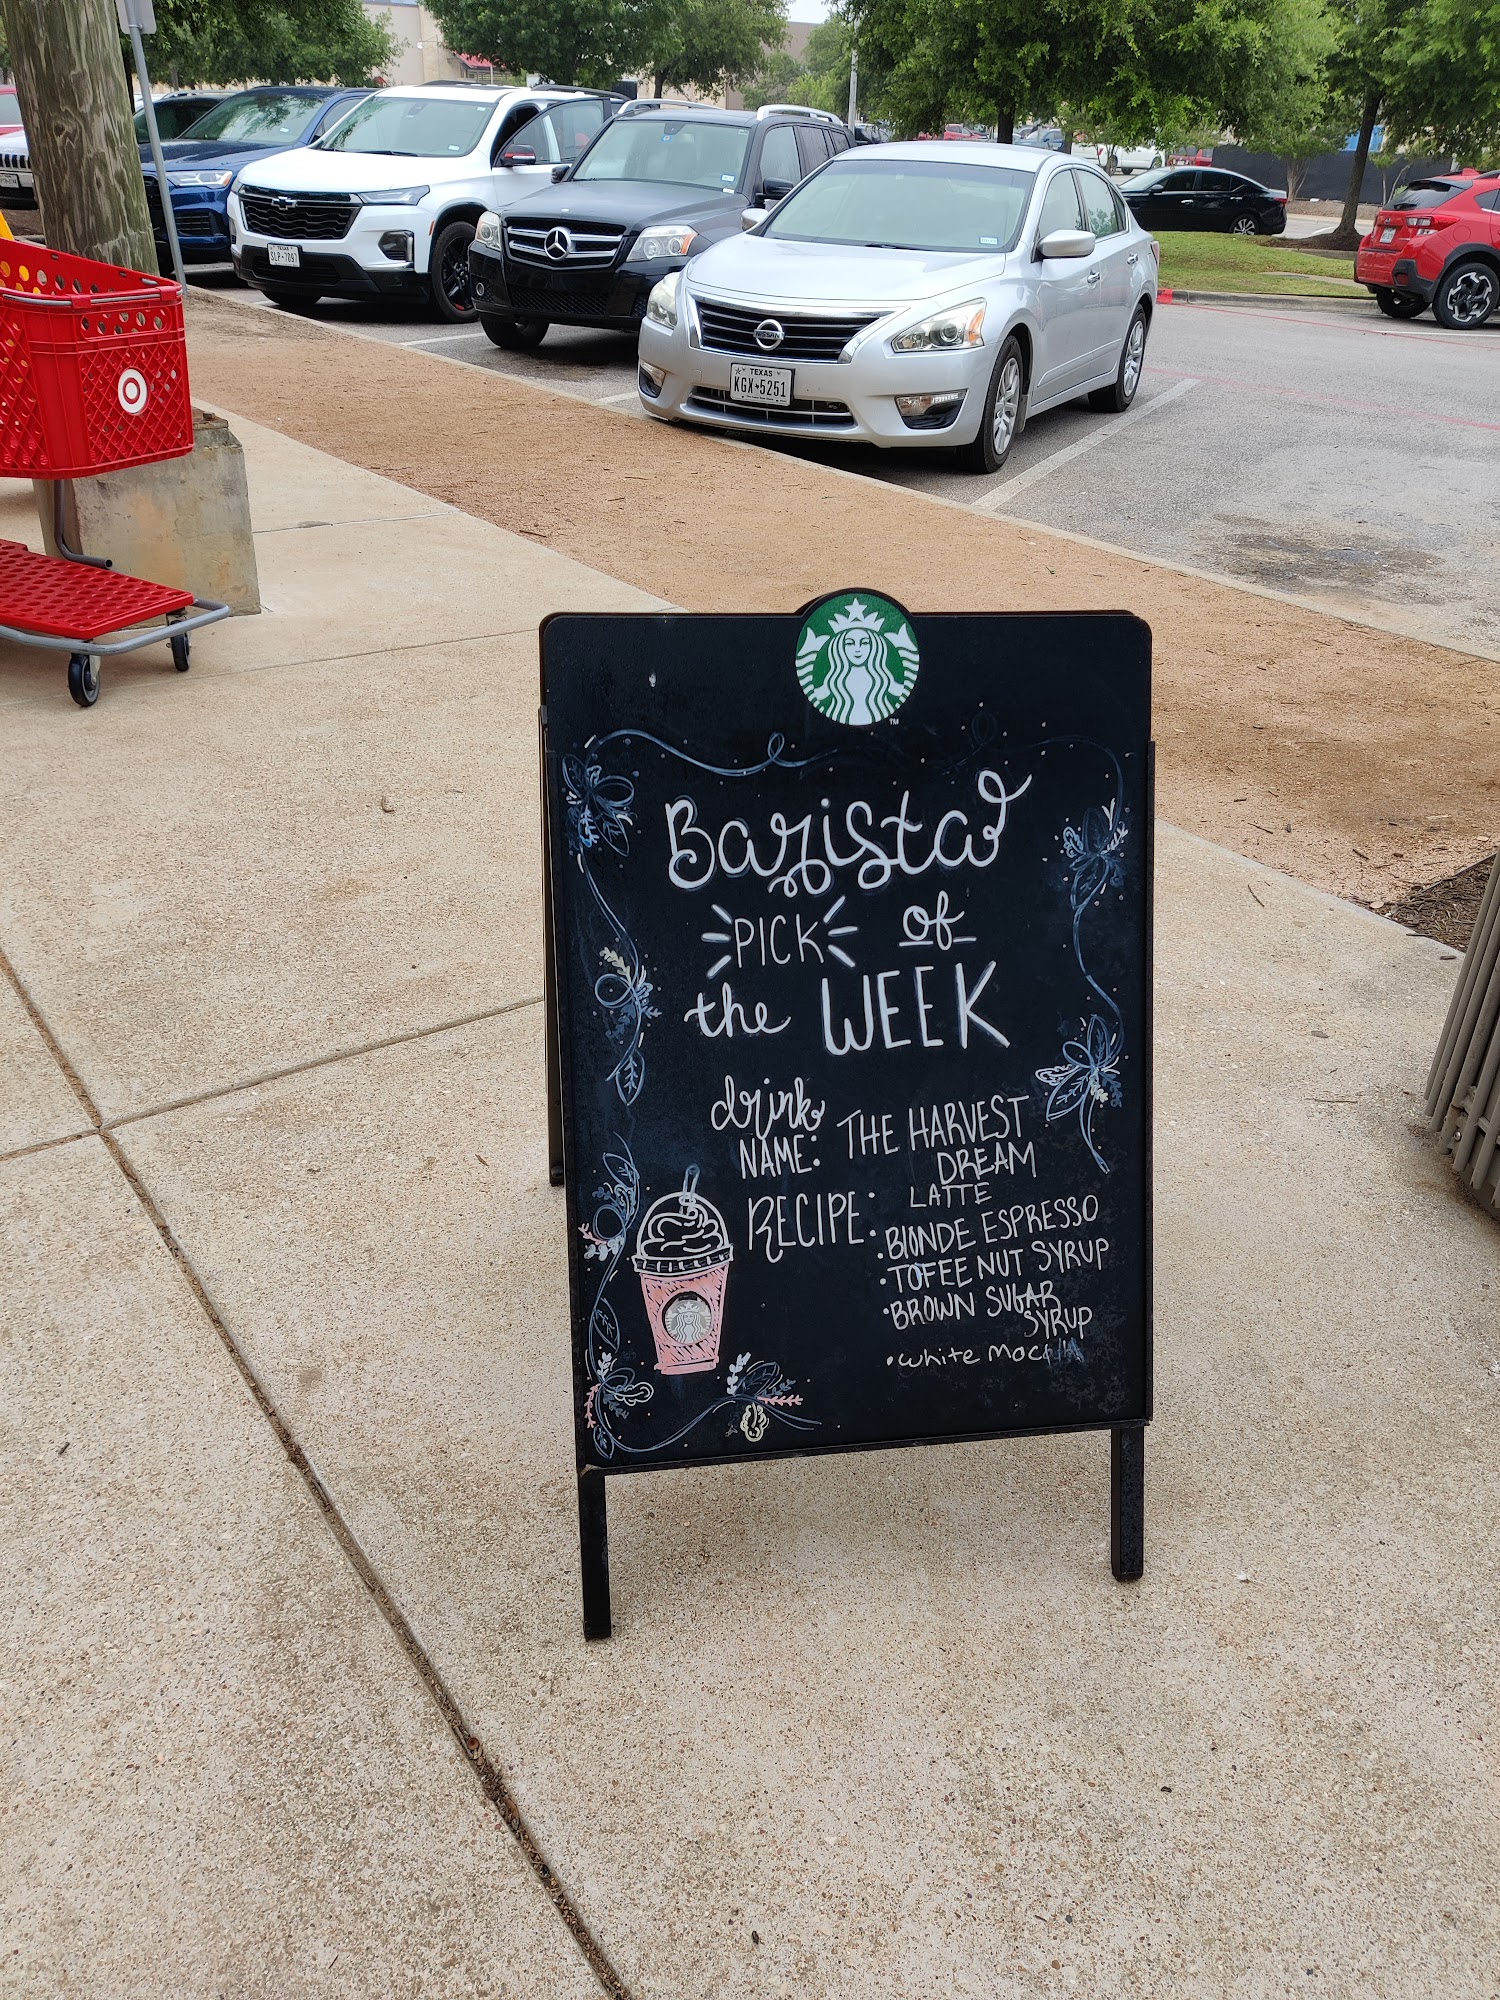 TEXAS
SLP•7097
NISSAN
TEXAS
KGX•5251
TM
Barista
PICK of
the WEEK
drink
NAME: THE HARVEST
DREAM
LATTE
RECIPE:
•BLONDE ESPRESSO
•TOFEE NUT SYRUP
•BROWN SUGAR
SYRUP
•white Mocha